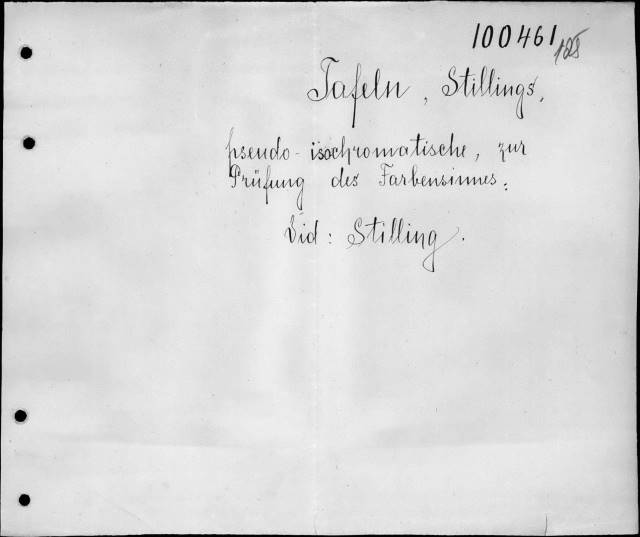 100461
128
Tafeln, Stillings,
pseudo-isochromatische, zur
Prüfung des Farbensinnes.
Vid: Stilling.